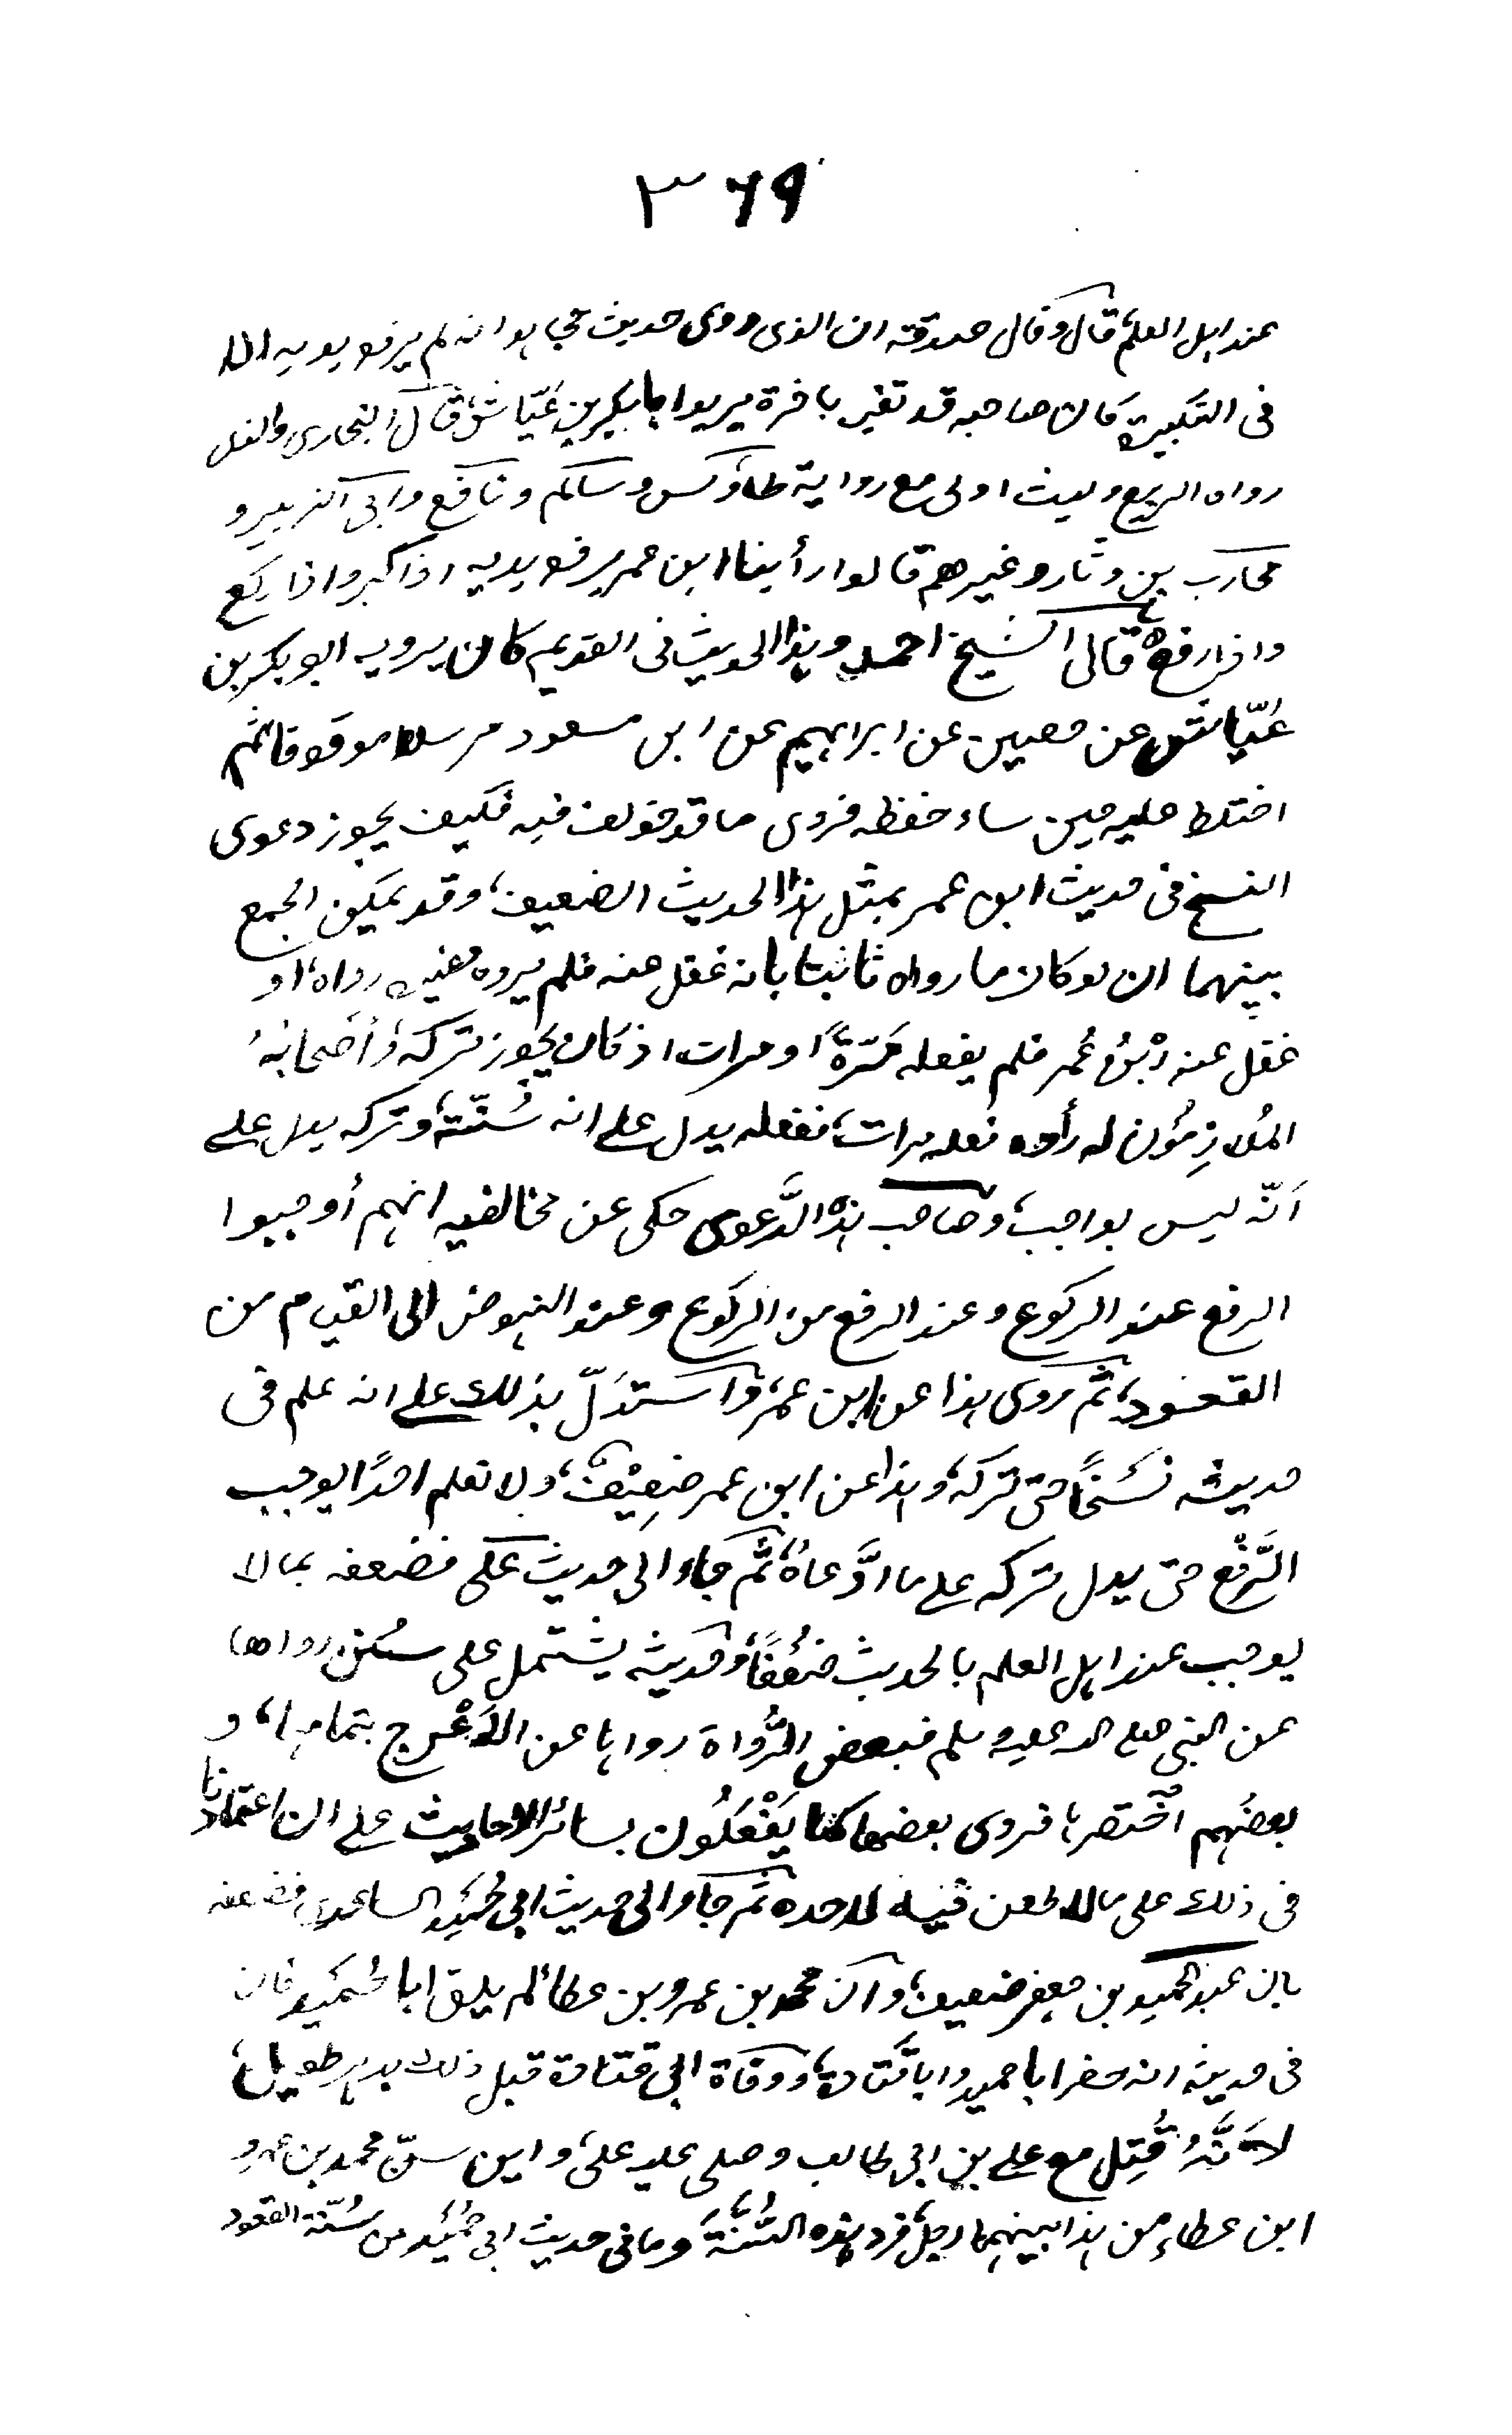 ٣٦٩
عند اهل العلم قال وقال صدوقة ان الذى روى حديث مجاهد انه لم يرفع يديه الا
فى التكبيرة كان صاحبه قد تغير بآخرة يريد ابابكر بن عيّاش، قال البخارى والذى
رواه الربيع وليث اولى مع رواية طاؤس وسالم ونافع وابى الزبير و
محارب بن دثار وغيرهم قالوا رأينا ابن عمر يرفع يديه اذا كبر واذا ركع
واذا رفع، قال الشيخ احمد وهذا الحديث فى القديم كان يرويه ابو بكر بن
عيّاش عن حصين عن ابراهيم عن ابن مسعود مرسلا موقوفا ثم
اختلط عليه حين ساء حفظه فروى ما قد خولف فيه فكيف يجوز دعوى
النسخ فى حديث ابن عمر بمثل هذا الحديث الضعيف، وقد يمكن الجمع
بينهما ان لو كان ما رواه ثابتا بانه غفل عنه فلم يره وغيره رواه، او
غفل عنه ابْنُ عُمر فلم يفعله مَرّةً او مرات اذ كان يجوز تركه، وأصحابُهُ
المُلازِمُون له رأوه فعله مرات، ففعله يدل على انه سُنّة، وتركه يدل على
أنّه ليس بواجب، وصاحب هذه الدَّعوى حكى عن مخالفيه انهم أوجبوا
الرفع عند الركوع وعند الرفع من الركوع وعند النهوض الى القيام من
القعود، ثم روى هذا عن ابن عمر، واستدَلّ بذلك على انه علم فى
حديثه نَسْخًا حتى تركه، وهذا عن ابن عمر ضعِيْفٌ، ولا نعلم احدًا يوجب
الرَّفْع حتى يدل تركه على ما ادَّعاهُ، ثُمّ جاء الى حديث علىّ فضعفه بما لا
يوجب عند اهل العلم بالحديث ضُعْفًا، وحديثه يشتمل على سُنن رواها
عن النبى صلى الله عليه وسلم فبعض الرُّواة رواها عن الاَعْرج بتمامها، و
بعضُهم اختصرها، فروى بعضها كما يَفْعَلُون بسائر الاحاديث على ان اعتمادنا
فى ذلك على مالا طعن فيه لاحد، ثم جاء الى حديث ابى حُمَيْد الساعدى فضعفه
بان عبد الحميد بن جعفر ضعيف، وان محمد بن عمرو بن عطاء لم يلق ابا حُميد فان
فى حديثه انه حضر ابا حميد وابا قَتادة، ووفاة ابى قتادة قبل ذلك بدهر طويل،
لأنَّهُ قُتِل مع على بن ابى طالب وصلى عليه على، واين سنّ محمد بن عمرو
ابن عطاءٍ من هذا بينهما رجل، فرد هذه السُّنَّة وما فى حديث ابى حُمَيْد من سُنّة القعود